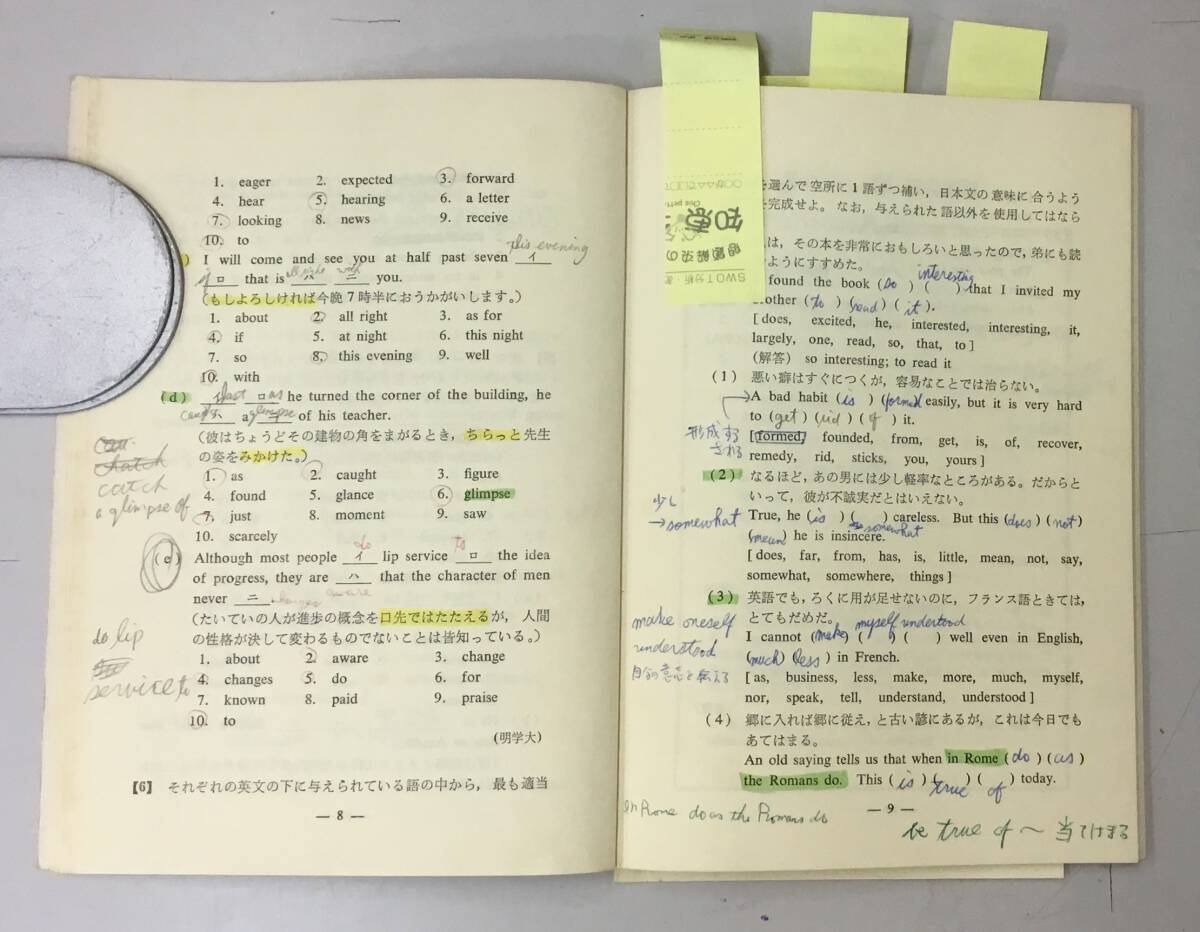 1. eager 2. expected 3. forward
4. hear 5. hearing 6. a letter
7. looking 8. news 9. receive
10. to
this evening
I will come and see you at half past seven イ
if ロ that is ハ ニ you.
all right with
(もしよろしければ今晩7時半におうかがいします。)
1. about 2. all right 3. as for
4. if 5. at night 6. this night
7. so 8. this evening 9. well
10. with
(d) イ ロ he turned the corner of the building, he
just as
ハ a ニ of his teacher.
caught glimpse
(彼はちょうどその建物の角をまがるとき，ちらっと先生
の姿をみかけた。)
1. as 2. caught 3. figure
4. found 5. glance 6. glimpse
7. just 8. moment 9. saw
10. scarcely
chatch
catch
a glimpse of
do to
(e) Although most people イ lip service ロ the idea
of progress, they are ハ that the character of men
never ニ.
changes aware
(たいていの人が進歩の概念を口先ではたたえるが，人間
の性格が決して変わるものでないことは皆知っている。)
1. about 2. aware 3. change
4. changes 5. do 6. for
7. known 8. paid 9. praise
10. to
do lip
service to
(明学大)
【6】 それぞれの英文の下に与えられている語の中から，最も適当
— 8 —
知恵
SWOT分析
を選んで空所に1語ずつ補い，日本文の意味に合うよう
を完成せよ。なお，与えられた語以外を使用してはなら
は，その本を非常におもしろいと思ったので，弟にも読
ようにすすめた。
found the book (so) ( ) that I invited my
interesting
brother (to) (read) (it).
[does, excited, he, interested, interesting, it,
largely, one, read, so, that, to]
(解答) so interesting; to read it
(1) 悪い癖はすぐにつくが，容易なことでは治らない。
A bad habit (is) (formed) easily, but it is very hard
to (get) (rid) (of) it.
[formed, founded, from, get, is, of, recover,
remedy, rid, sticks, you, yours]
形成する
される
(2) なるほど，あの男には少し軽率なところがある。だからと
いって，彼が不誠実だとはいえない。
True, he (is) ( ) careless. But this (does) (not)
somewhat
(mean) he is insincere.
[does, far, from, has, is, little, mean, not, say,
somewhat, somewhere, things]
少し
→somewhat
(3) 英語でも，ろくに用が足せないのに，フランス語ときては，
とてもだめだ。
myself understood
I cannot (make) ( ) ( ) well even in English,
(much) (less) in French.
[as, business, less, make, more, much, myself,
nor, speak, tell, understand, understood]
make oneself
understood
自分の意志を伝える
(4) 郷に入れば郷に従え，と古い諺にあるが，これは今日でも
あてはまる。
An old saying tells us that when in Rome (do) (as)
the Romans do. This (is) ( ) ( ) today.
true of
— 9 —
in Rome do as the Romans do
be true of ～ 当てはまる